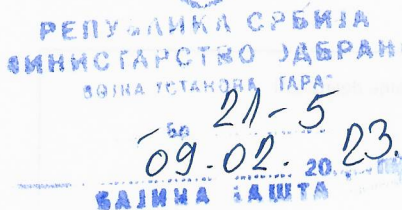 РЕПУБЛИКА СРБИЈА
МИНИСТАРСТВО ОДБРАНЕ
ВОЈНА УСТАНОВА "ТАРА"
Бр. 21-5
09.02. 2023.
БАЈИНА БАШТА